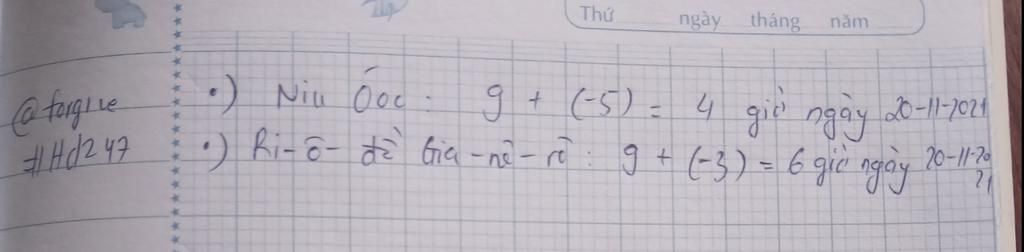 Thứ ngày tháng năm
@forgive
#Hd247
•) Niu Óoc : 9 + (-5) = 4 giờ ngày 20-11-2021
•) Ri-ô- đề Gia-nê-rô : 9 + (-3) = 6 giờ ngày 20-11-20
21